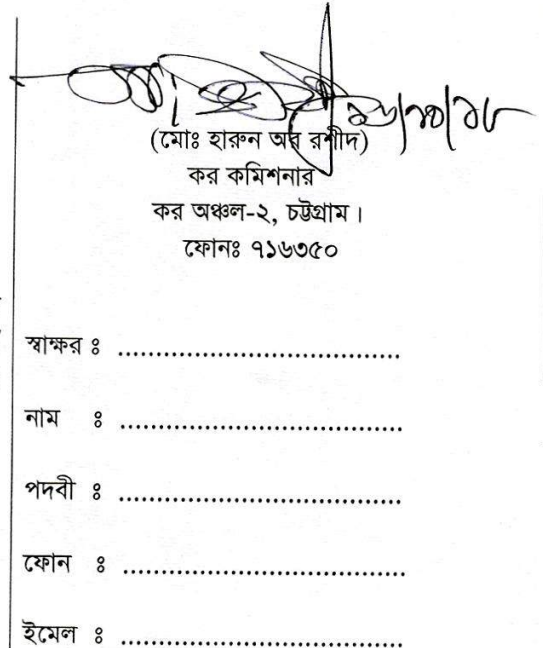 (মোঃ হারুন অর রশীদ)
কর কমিশনার
কর অঞ্চল-২, চট্টগ্রাম।
ফোনঃ ৭১৬৩৫০
স্বাক্ষর ঃ ..............................................
নাম ঃ ..............................................
পদবী ঃ ..............................................
ফোন ঃ ..............................................
ইমেল ঃ ..............................................